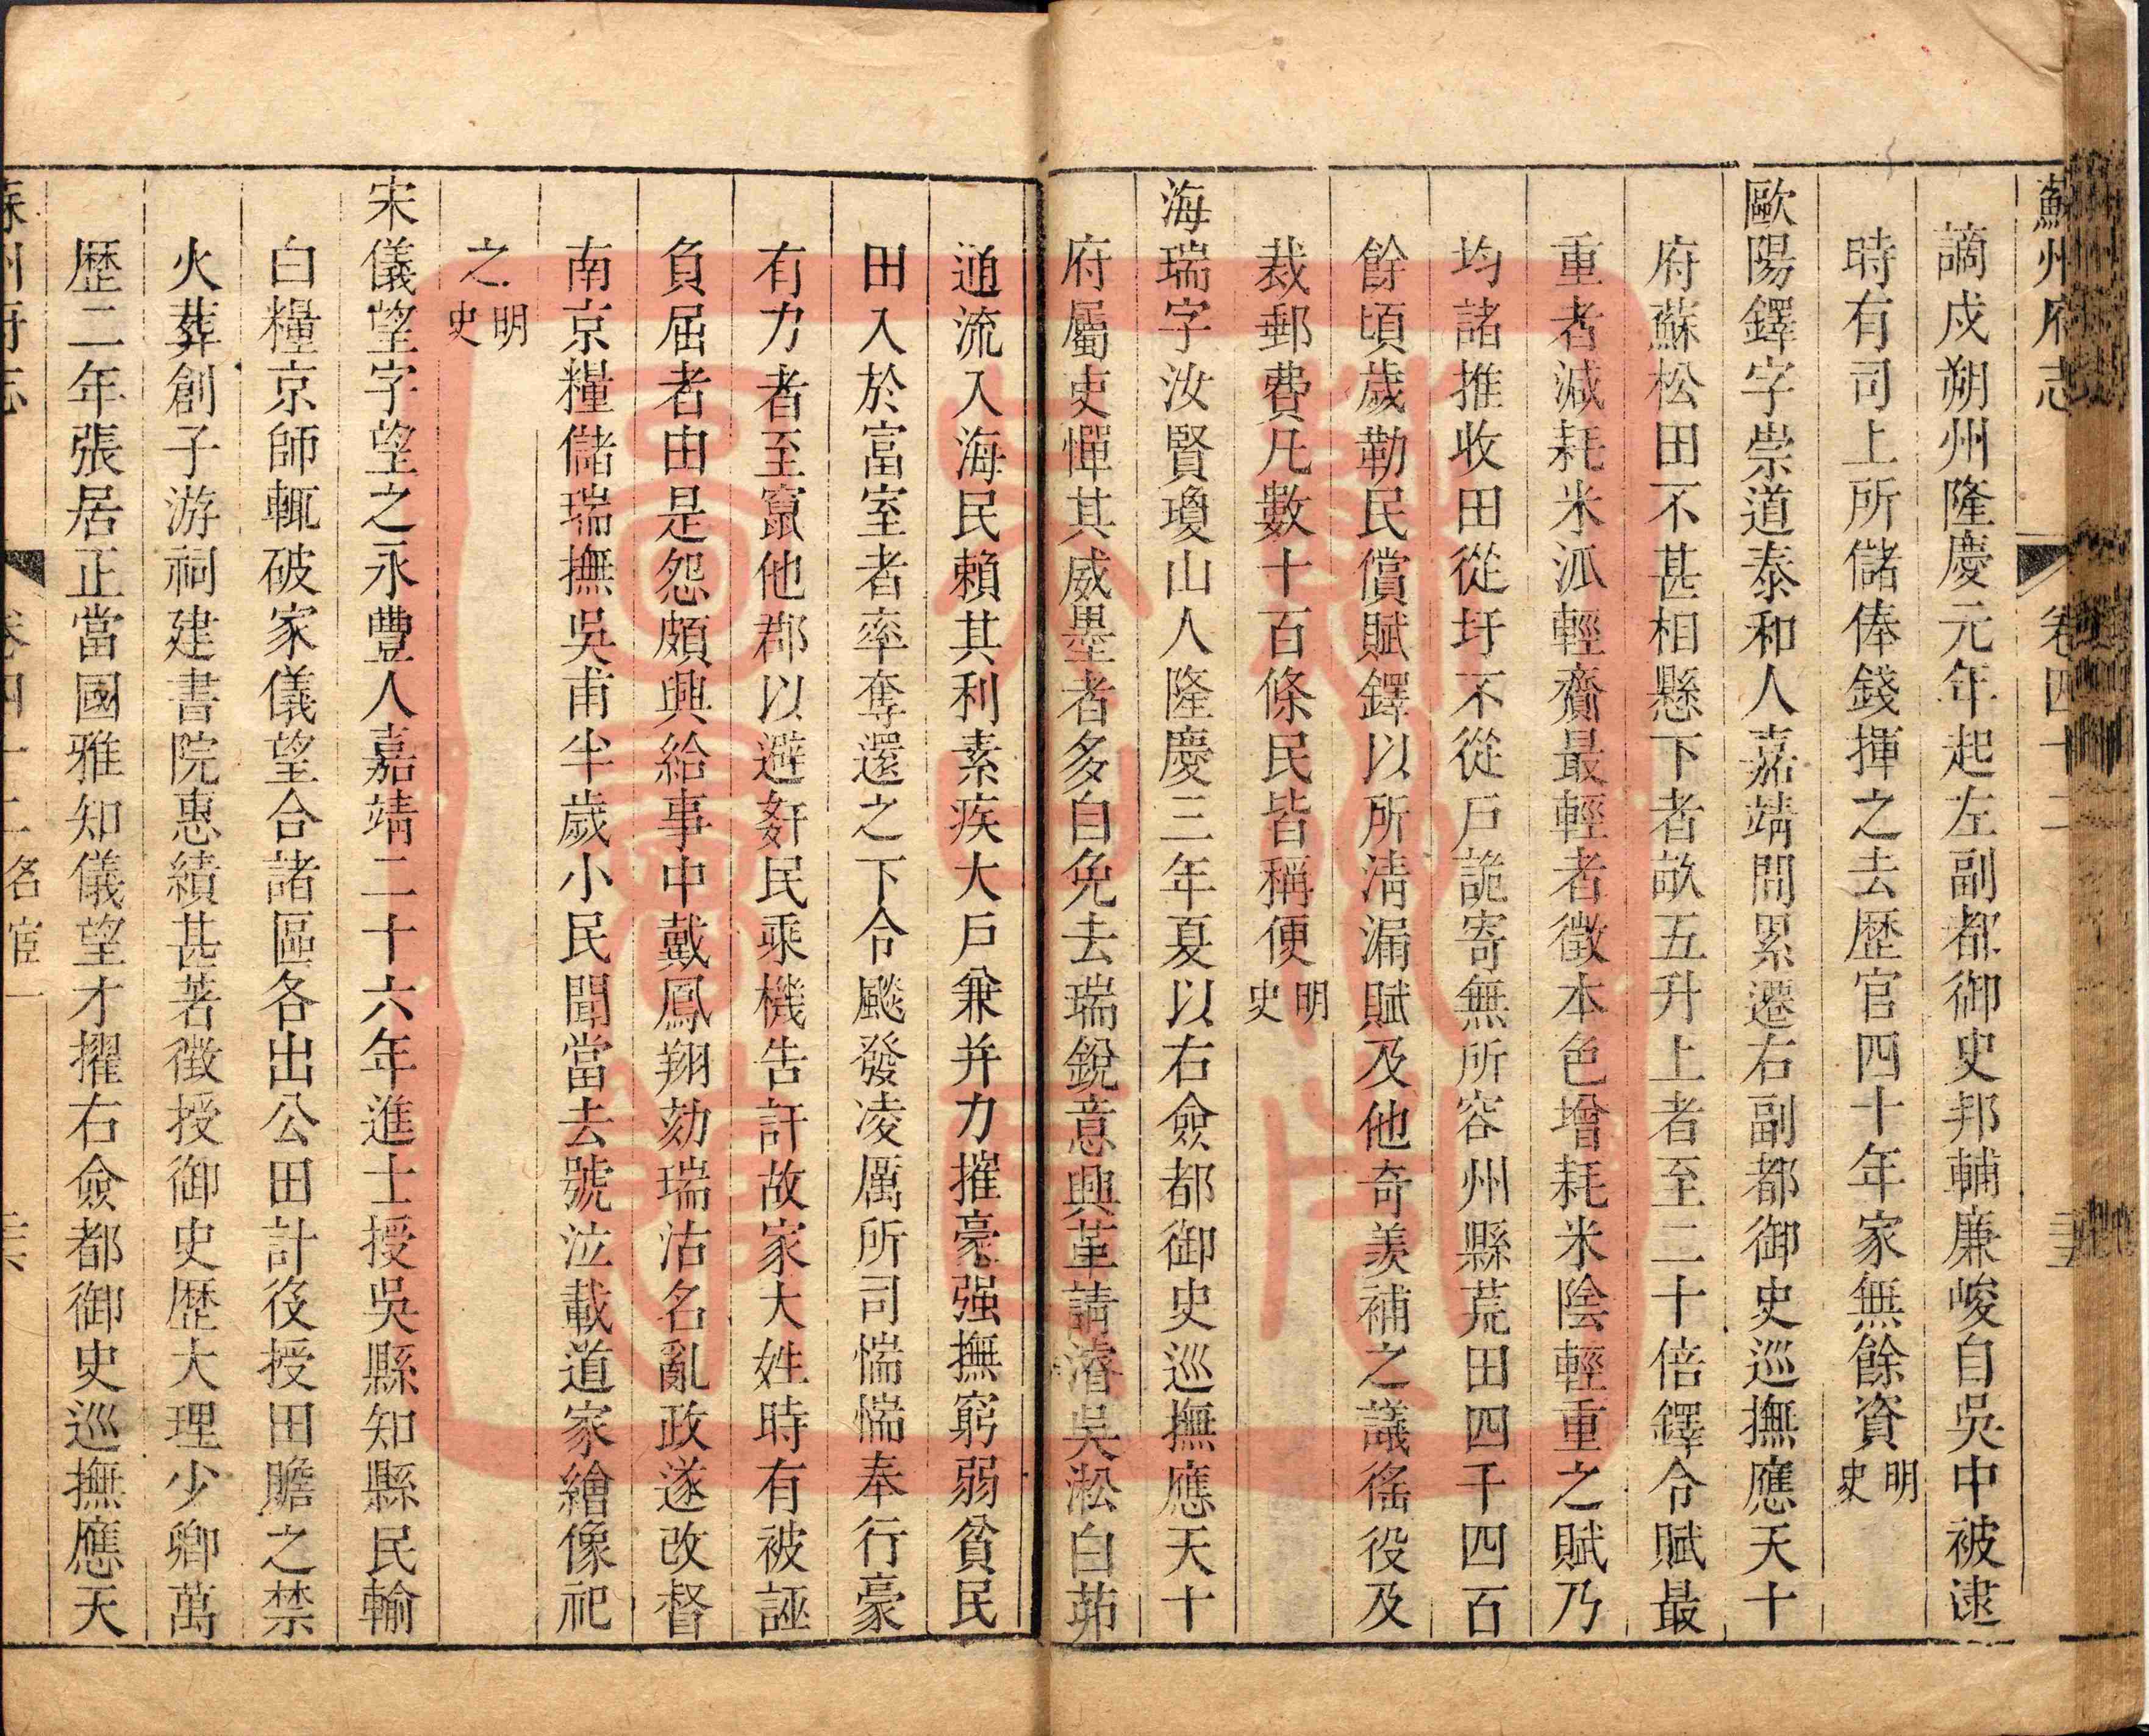 蘇州府志 卷四十二
謫戍朔州隆慶元年起左副都御史邦輔廉峻自吳中被逮
時有司上所儲俸錢揮之去歷官四十年家無餘資明史
歐陽鐸字崇道泰和人嘉靖間累遷右副都御史巡撫應天十
府蘇松田不甚相懸下者畝五升上者至二十倍鐸令賦最
重者減耗米派輕齎最輕者徵本色增耗米陰輕重之賦乃
均諸推收田從圩不從戶詭寄無所容州縣荒田四千四百
餘頃歲勒民償賦鐸以所清漏賦及他奇羨補之議徭役及
裁郵費凡數十百條民皆稱便明史
海瑞字汝賢瓊山人隆慶三年夏以右僉都御史巡撫應天十
府屬吏憚其威墨者多自免去瑞銳意興革請濬吳淞白茆
通流入海民賴其利素疾大戶兼并力摧豪强撫窮弱貧民
田入於富室者率奪還之下令飈發凌厲所司惴惴奉行豪
有力者至竄他郡以避姧民乘機告訐故家大姓時有被誣
負屈者由是怨頗興給事中戴鳳翔劾瑞沽名亂政遂改督
南京糧儲瑞撫吳甫半歲小民聞當去號泣載道家繪像祀
之明史
宋儀望字望之永豐人嘉靖二十六年進士授吳縣知縣民輸
白糧京師輒破家儀望合諸區各出公田計役授田贍之禁
火葬創子游祠建書院惠績甚著徵授御史歷大理少卿萬
歷二年張居正當國雅知儀望才擢右僉都御史巡撫應天
蘇州府志 卷四十二名宦一